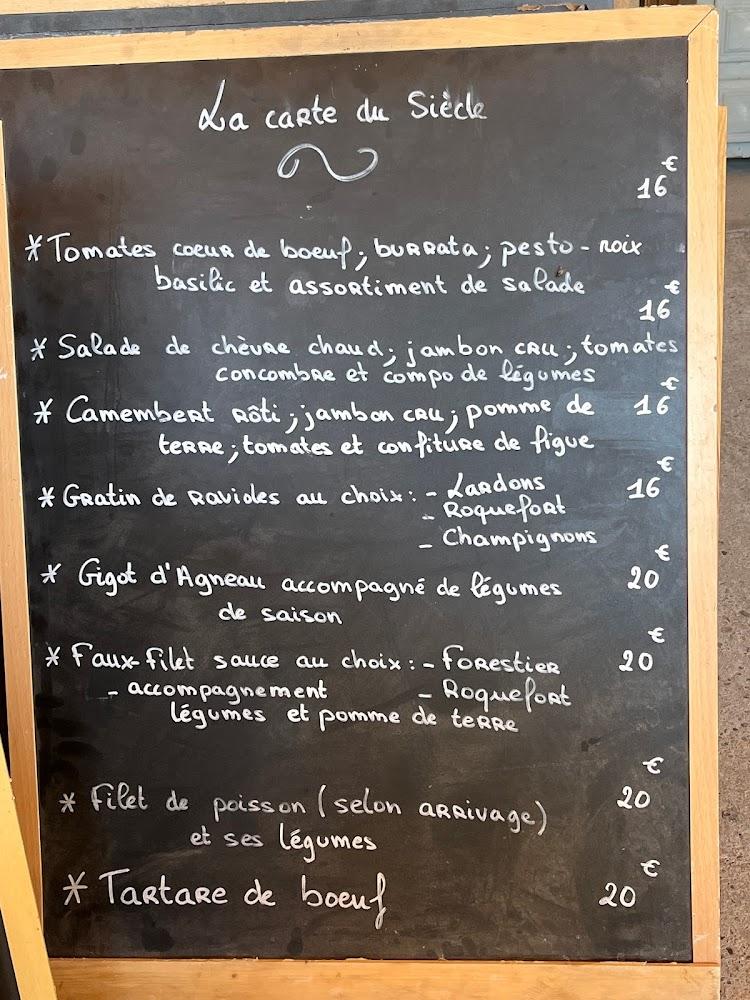 La carte du Siècle
€
16
* Tomates coeur de boeuf ; burrata ; pesto - noix
basilic et assortiment de salade
€
16
* Salade de chèvre chaud ; jambon cru ; tomates
concombre et compo de légumes
€
* Camembert rôti ; jambon cru ; pomme de 16
terre ; tomates et confiture de figue
€
* Gratin de ravioles au choix : - Lardons 16
- Roquefort
- Champignons
€
* Gigot d'Agneau accompagné de légumes 20
de saison
€
* Faux-filet sauce au choix : - Forestier 20
- accompagnement - Roquefort
légumes et pomme de terre
€
* Filet de poisson (selon arrivage) 20
et ses légumes
€
* Tartare de boeuf 20